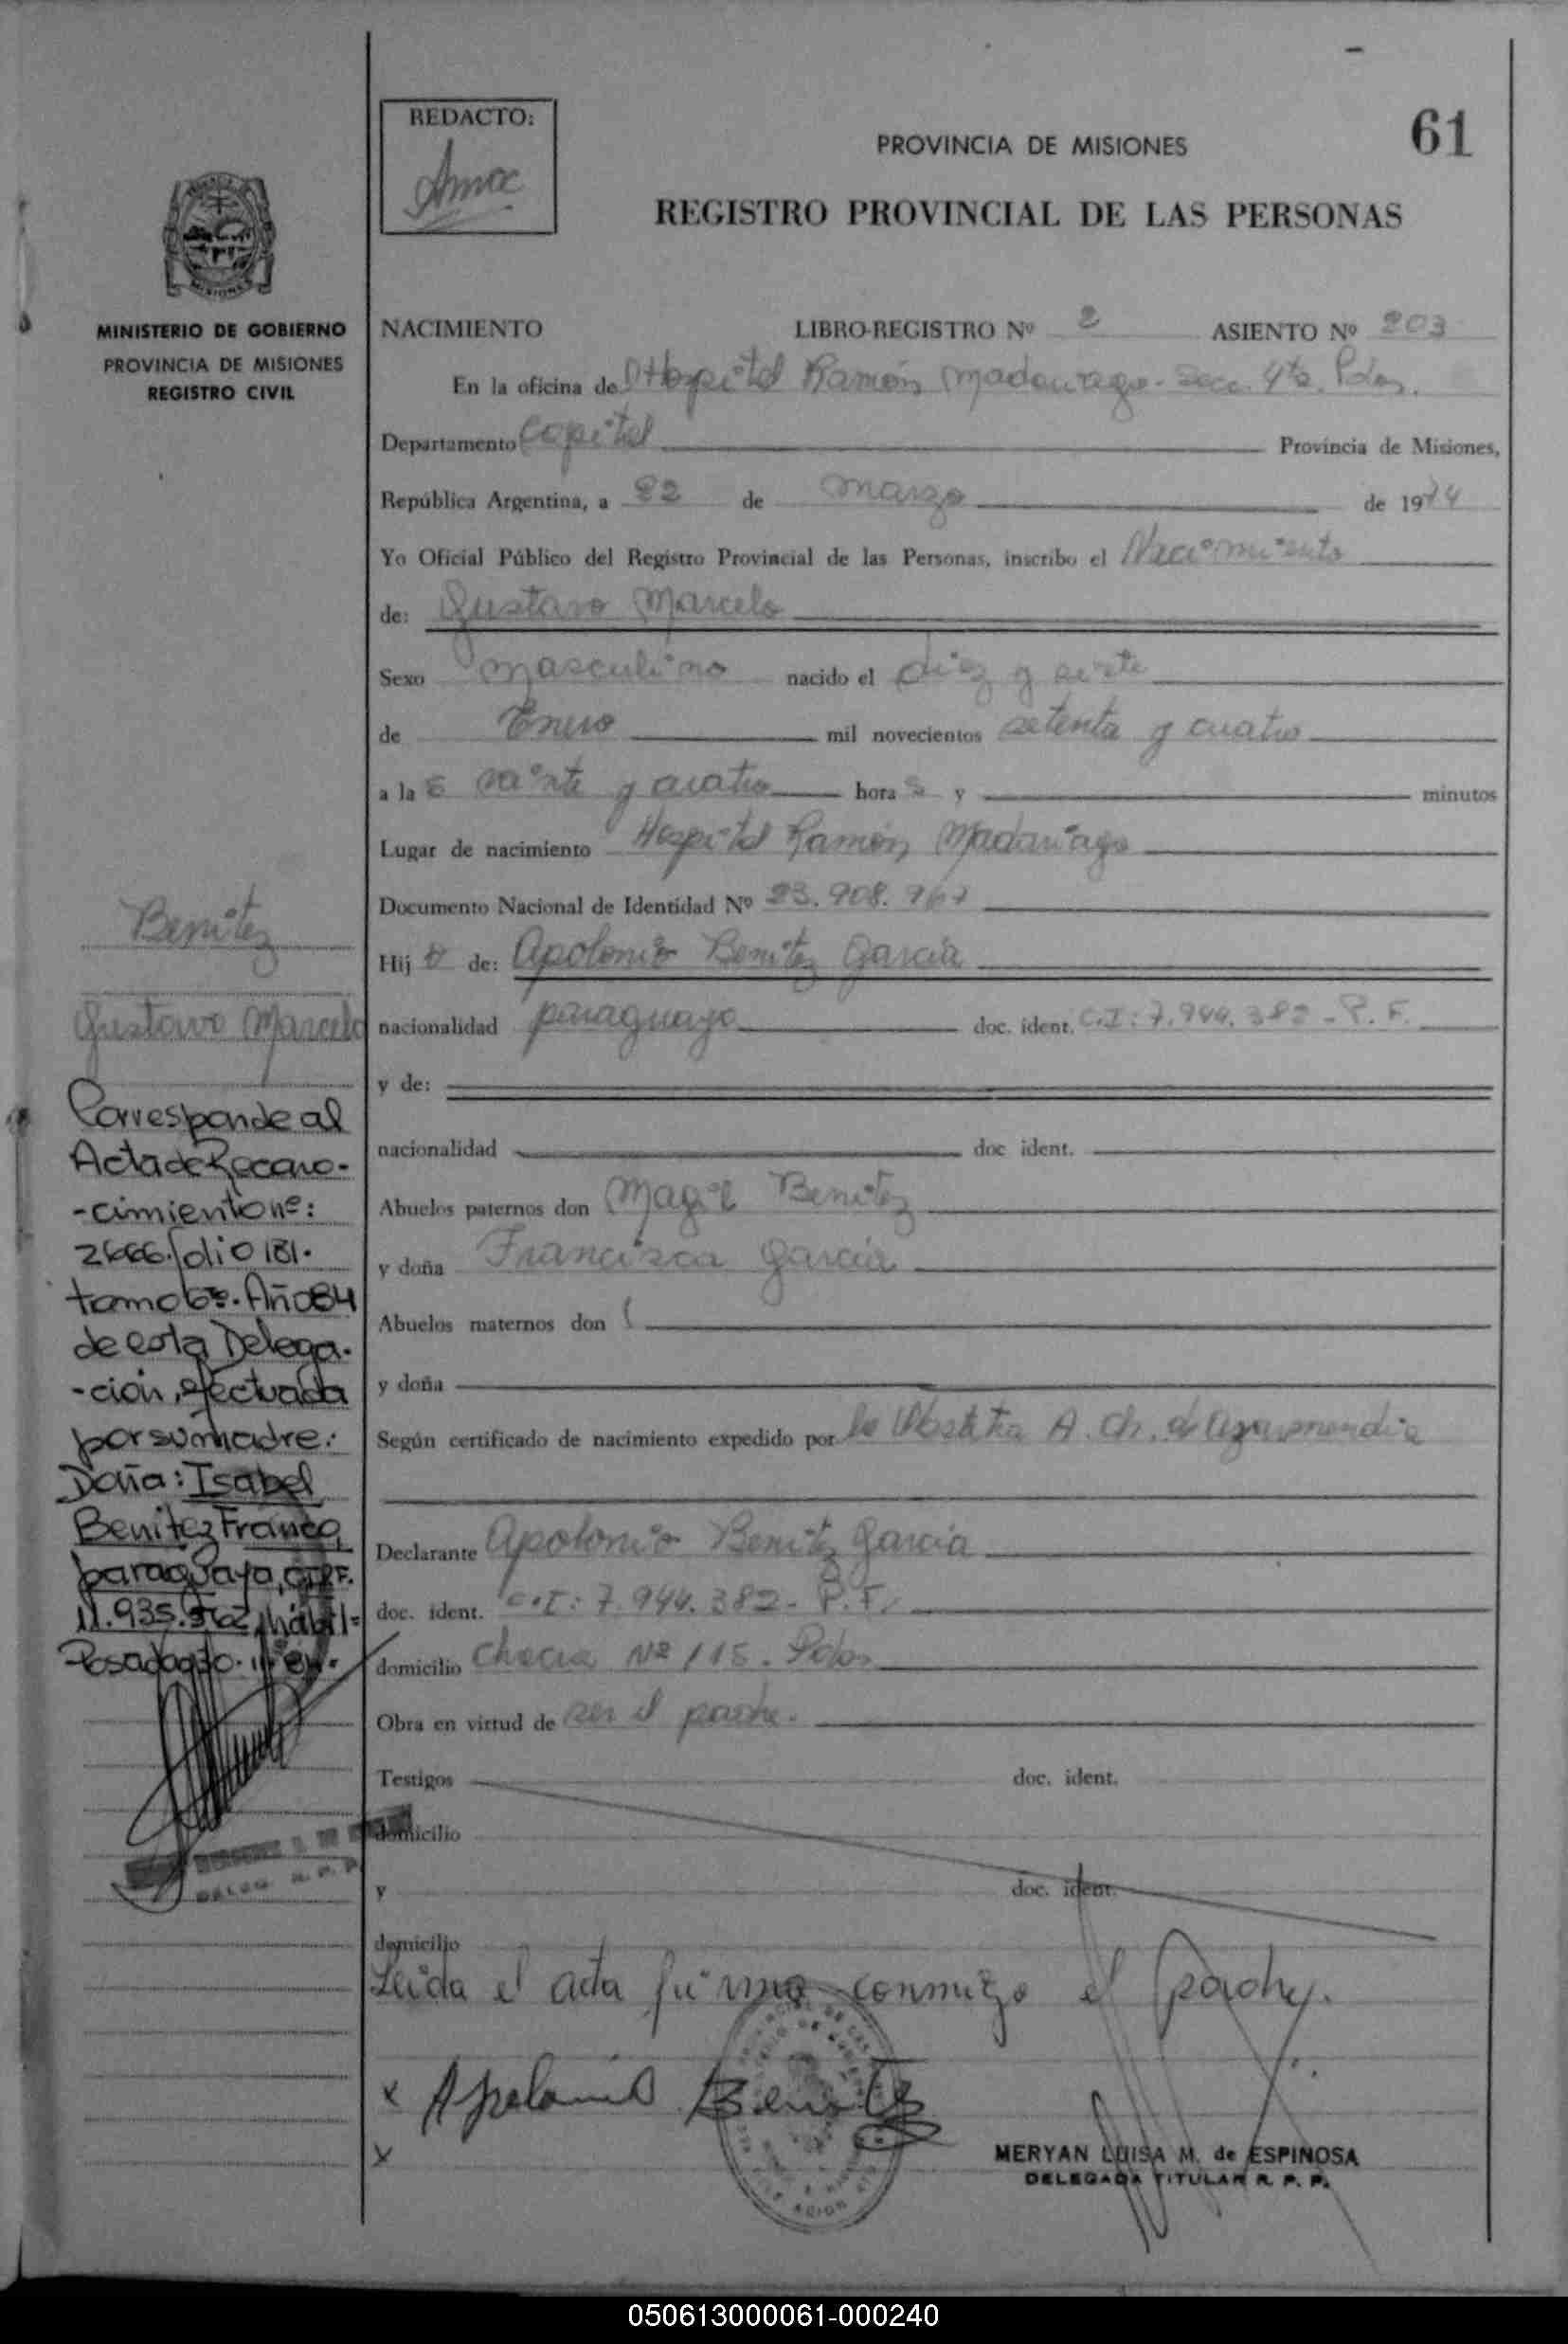 REDACTO:
61
PROVINCIA DE MISIONES
REGISTRO PROVINCIAL DE LAS PERSONAS
MISIONES
MINISTERIO DE GOBIERNO
PROVINCIA DE MISIONES
REGISTRO CIVIL
NACIMIENTO LIBRO-REGISTRO Nº 2 ASIENTO Nº 203
En la oficina de Hospital Ramón Madariaga - Secc. 4ta. Pdas.
Departamento Capital Provincia de Misiones,
República Argentina, a 22 de marzo de 1974
Yo Oficial Público del Registro Provincial de las Personas, inscribo el Nacimiento
de: Gustavo Marcelo
Sexo masculino nacido el diez y siete
de Enero mil novecientos setenta y cuatro
a las veinte y cuatro horas y minutos
Lugar de nacimiento Hospital Ramón Madariaga
Documento Nacional de Identidad Nº 23.908.967
Hijo de: Apolonio Benitez Garcia
nacionalidad paraguayo doc. ident. C.I: 7.944.382 - P. F.
y de:
nacionalidad doc ident.
Abuelos paternos don Benitez
y doña Francisca Garcia
Abuelos maternos don
y doña
Según certificado de nacimiento expedido por la A. Ch. de
Declarante Apolonio Benitez Garcia
doc. ident. C.I: 7.944.382 - P. F.
domicilio Chacra Nº 115. Pdas
Obra en virtud de ser el padre.
Testigos doc. ident.
domicilio
y doc. ident.
domicilio
Leida el acta firma conmigo el padre.
x Apolonio Benitez
x
MERYAN LUISA M. de ESPINOSA
DELEGADA TITULAR R. P. P.
Benitez
Gustavo Marcelo
Corresponde al
Acta de Recono-
-cimiento nº:
2666. folio 181.
tomo 6º. Año 84
de esta Delega-
-ción, efectuada
por su madre:
Doña: Isabel
Benitez Franco,
paraguaya, C.I.P.F.
11.935. hábil=
Posadas
DELEG. R. P. P.
050613000061-000240